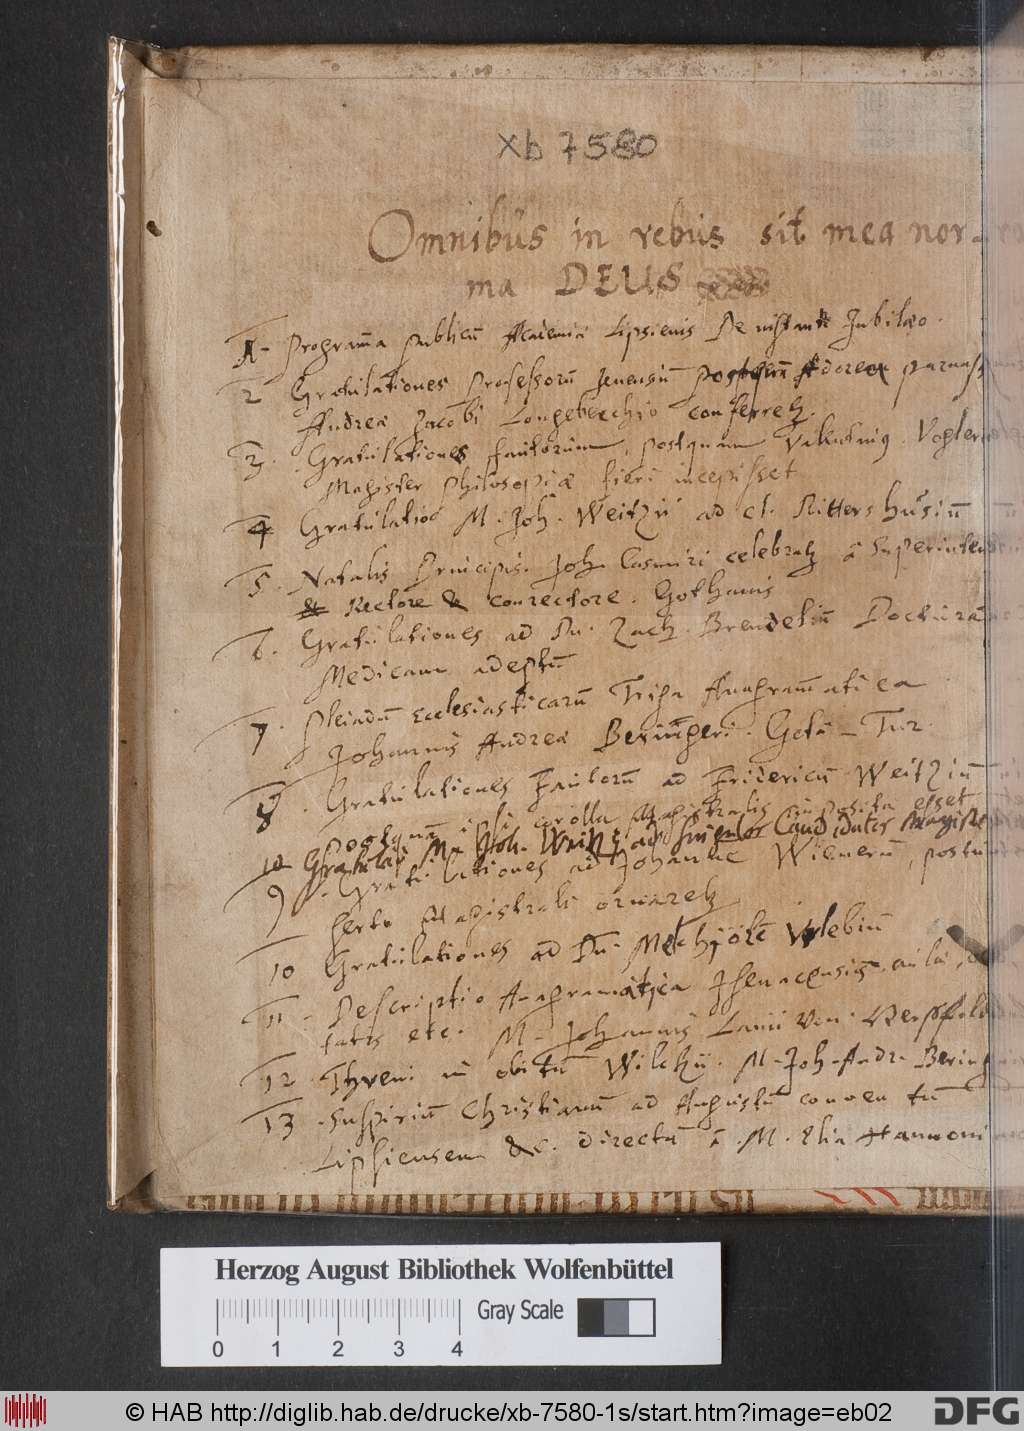 Xb 7580
Omnibus in rebus sit mea nor-
ma DEUS
1. Programa publicū Academiæ Lipsiensis De instante Jubilæo.
2 Gratulationes Professorū Jenensiū
Andreæ Jacobi Longebecchio conferretꝫ.
3. Gratulationes fautorum, postquam Valentinꝰ Vogleru
Magister Philosopiæ fieri incepisset
4 Gratulatioēs M. Joh. Weitzii ad cl. Rittershusiū
5. Natalis Principis. Joh Casmiri celebratꝫ â Superinten
Rectore & conrectore. Gothanis
6. Gratulationes ad Dn. Zach. Brendeliū Docturā
Medicam adeptū
7. Pleiadū Ecclesiasticarū Triga Anagram̄atica
Johannis Andreæ Beringeri. Gota-Tur.
8. Gratulationes Fautorū ad Fridericū Weitziū
postquā ipsi corolla Magistralis imposita esset
10 Gratulaō M. Joh. Weitz ad Candidatos Magist
9). Gratulationes ad Johanne Wienerū, postū
serto Magistrali ornaretꝫ
10 Gratulationes ad Dn. Melchjorē Vrlebiū
11. Descriptio Anagramatica Isenacensis aulæ,
tatis etc. M. Johannis Lanii
12. Threni in obitū Wilckii. M. Joh. Andr. Bering
13. Suspiriū Christianū ad Augustū conventū
Lipsiensem &c. directū â M. Elia
Herzog August Bibliothek Wolfenbüttel
Gray Scale
0 1 2 3 4
© HAB http://diglib.hab.de/drucke/xb-7580-1s/start.htm?image=eb02
DFG